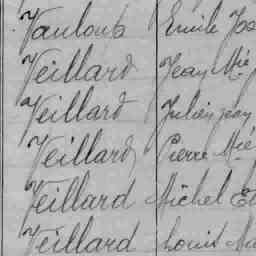 Vauloup Emile
Veillard Jean Mie
Veillard Julien Jean
Veillard Pierre Mie
Veillard Michel
Veillard Louis